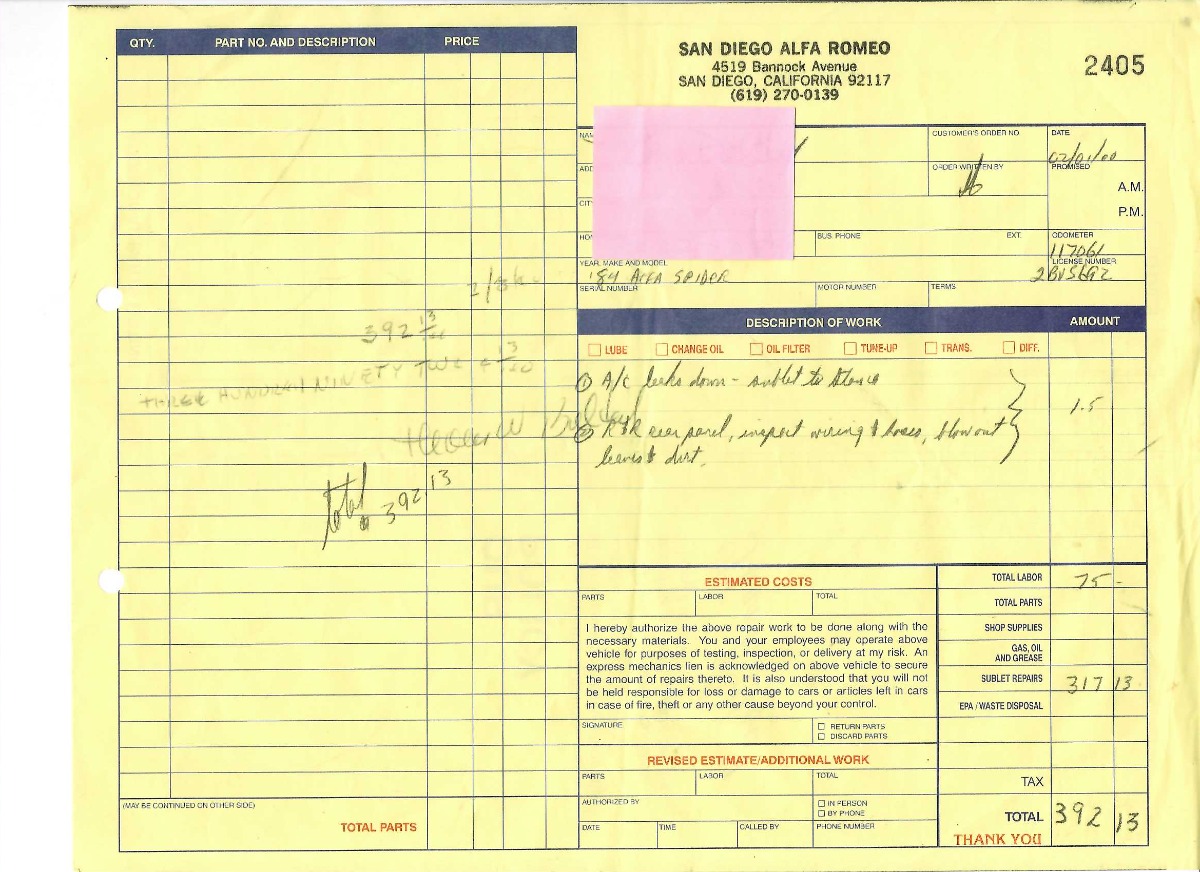 QTY. PART NO. AND DESCRIPTION PRICE
SAN DIEGO ALFA ROMEO
4519 Bannock Avenue
SAN DIEGO, CALIFORNIA 92117
(619) 270-0139
2405
CUSTOMER'S ORDER NO.
DATE
02/01/00
ORDER WRITTEN BY
PROMISED
A.M.
P.M.
BUS. PHONE EXT.
ODOMETER
117061
YEAR, MAKE AND MODEL
'84 ALFA SPIDER
LICENSE NUMBER
2BVS692
SERIAL NUMBER MOTOR NUMBER TERMS
392 13
THREE HUNDRED NINETY TWO & 13
total 392.13
DESCRIPTION OF WORK AMOUNT
LUBE CHANGE OIL OIL FILTER TUNE-UP TRANS. DIFF.
① A/C leaks down - sublet to
1.5
② R&R rear panel, inspect wiring & hoses, blow out
leaves & dirt.
ESTIMATED COSTS
PARTS LABOR TOTAL
I hereby authorize the above repair work to be done along with the
necessary materials. You and your employees may operate above
vehicle for purposes of testing, inspection, or delivery at my risk. An
express mechanics lien is acknowledged on above vehicle to secure
the amount of repairs thereto. It is also understood that you will not
be held responsible for loss or damage to cars or articles left in cars
in case of fire, theft or any other cause beyond your control.
SIGNATURE
RETURN PARTS
DISCARD PARTS
REVISED ESTIMATE/ADDITIONAL WORK
PARTS LABOR TOTAL
AUTHORIZED BY
IN PERSON
BY PHONE
DATE TIME CALLED BY PHONE NUMBER
TOTAL LABOR 75 -
TOTAL PARTS
SHOP SUPPLIES
GAS, OIL
AND GREASE
SUBLET REPAIRS 317 13
EPA / WASTE DISPOSAL
TAX
TOTAL 392 13
THANK YOU
(MAY BE CONTINUED ON OTHER SIDE)
TOTAL PARTS